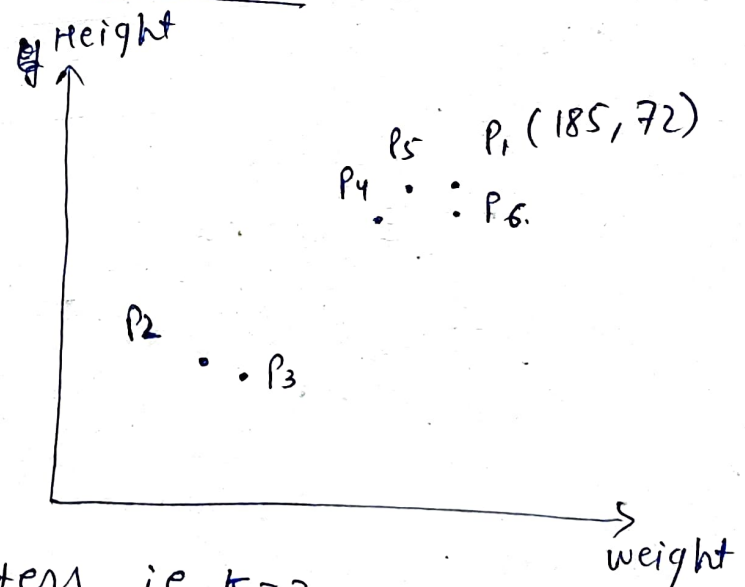 Height
P5 P1 (185, 72)
P4
P6.
P2
P3
weight
ie k=2